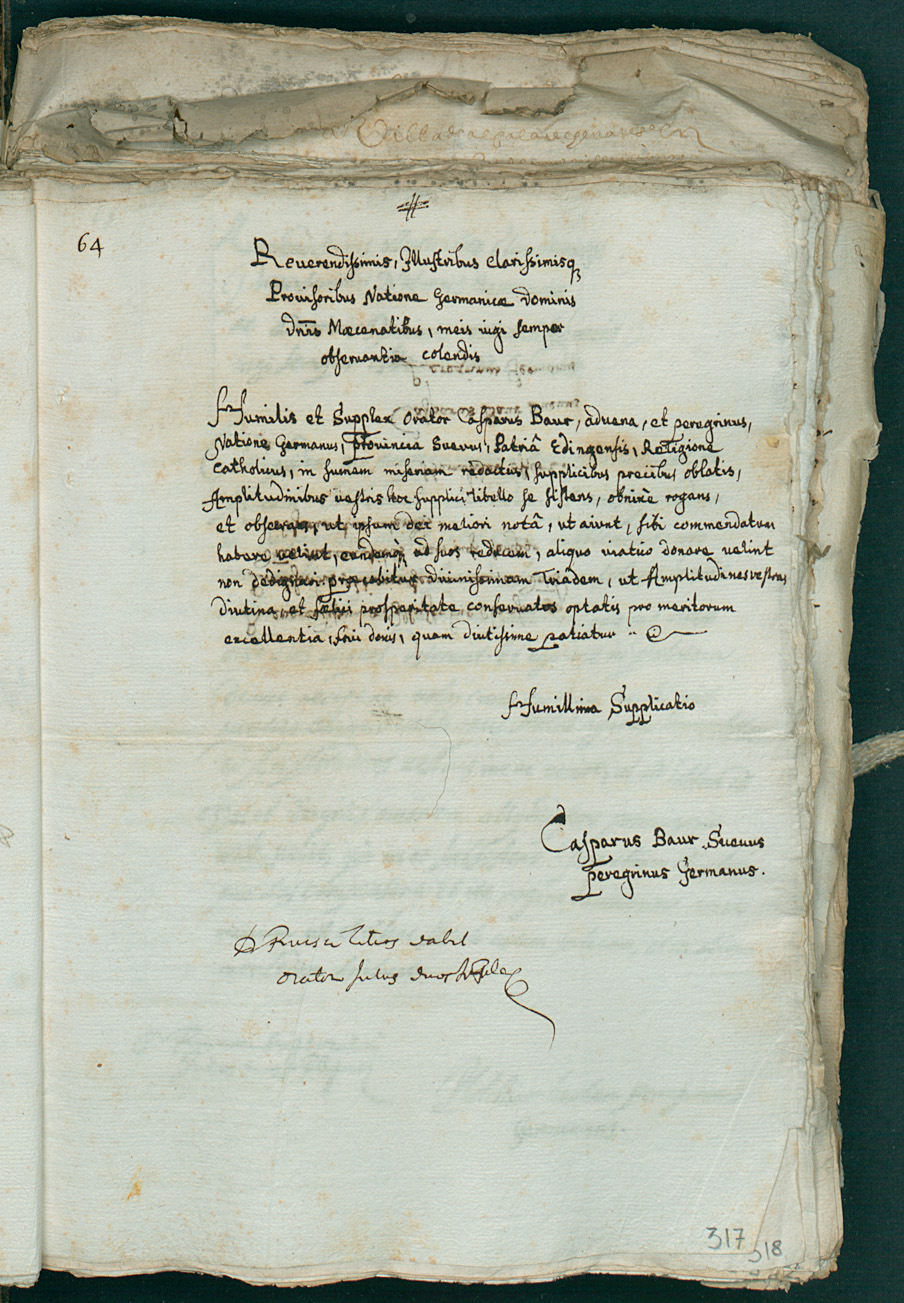 64
Reuerendissimis, Illustribus Clarissimisq
Prouisoribus Natione Germanicæ dominis
dnis Mœcenatibus, meis iugi semper
obseruantia colendis
Humilis et Supplex Orator Casparus Baur, aduena, et peregrinus,
Natione Germanus, Prouincia Sueuus, Patriâ Edingensis, Religione
Catholicus, in sumam miseriam redactus, supplicibus precibus oblatis,
Amplitudinibus uestris hoc supplici libello se sistens, obnixe rogans,
et obsecrans, ut ipsum dei meliori notâ, ut aiunt, sibi commendatum
habere uelint, ad suos reducem, aliquo uiatico donare uelint
non dedignen precabitur diuinissimam Triadem, ut Amplitudines vestras
diutina, et fœlici prosperitate conseruatos optatis pro meritorum
excellentia, frui donis, quam diutissime patiatur
Humillima Supplicatio
Casparus Baur Sueuus
peregrinus Germanus.
dabit
orator
317
318